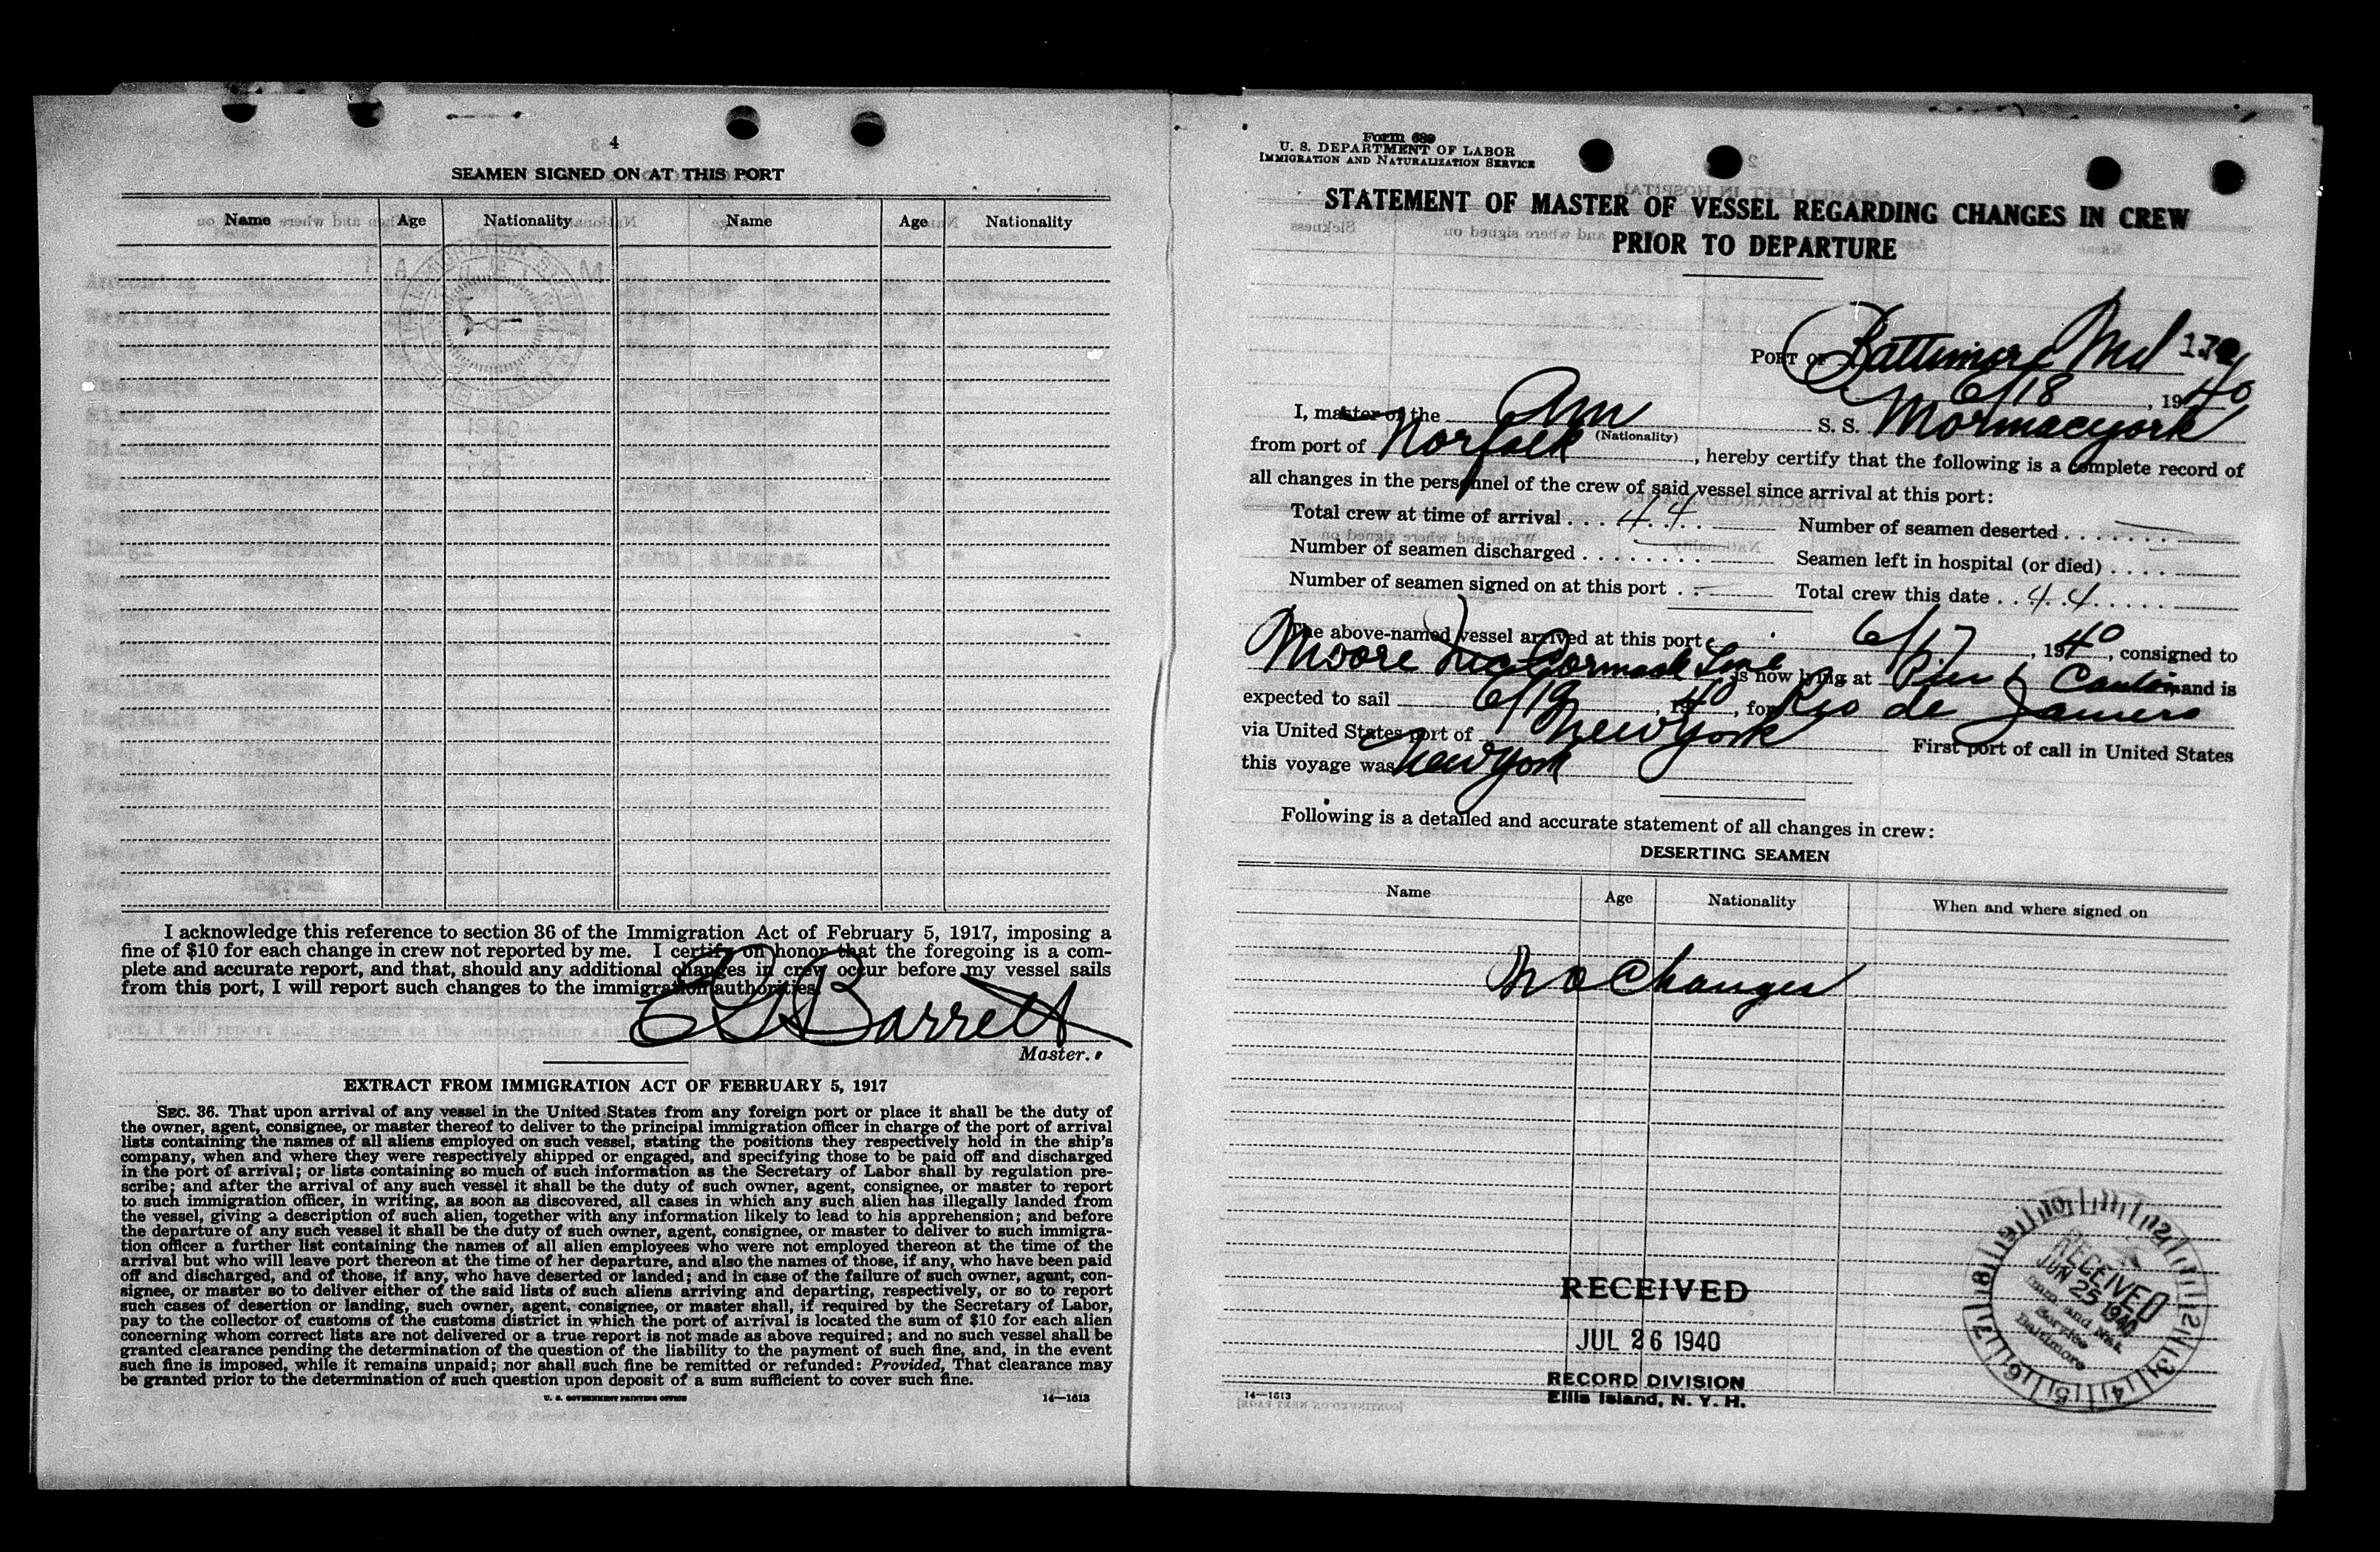 4
SEAMEN SIGNED ON AT THIS PORT
Name Age Nationality Name Age Nationality
I acknowledge this reference to section 36 of the Immigration Act of February 5, 1917, imposing a
fine of $10 for each change in crew not reported by me. I certify on honor that the foregoing is a com-
plete and accurate report, and that, should any additional changes in crew occur before my vessel sails
from this port, I will report such changes to the immigration authorities.
Barrett
Master.
EXTRACT FROM IMMIGRATION ACT OF FEBRUARY 5, 1917
SEC. 36. That upon arrival of any vessel in the United States from any foreign port or place it shall be the duty of
the owner, agent, consignee, or master thereof to deliver to the principal immigration officer in charge of the port of arrival
lists containing the names of all aliens employed on such vessel, stating the positions they respectively hold in the ship's
company, when and where they were respectively shipped or engaged, and specifying those to be paid off and discharged
in the port of arrival; or lists containing so much of such information as the Secretary of Labor shall by regulation pre-
scribe; and after the arrival of any such vessel it shall be the duty of such owner, agent, consignee, or master to report
to such immigration officer, in writing, as soon as discovered, all cases in which any such alien has illegally landed from
the vessel, giving a description of such alien, together with any information likely to lead to his apprehension; and before
the departure of any such vessel it shall be the duty of such owner, agent, consignee, or master to deliver to such immigra-
tion officer a further list containing the names of all alien employees who were not employed thereon at the time of the
arrival but who will leave port thereon at the time of her departure, and also the names of those, if any, who have been paid
off and discharged, and of those, if any, who have deserted or landed; and in case of the failure of such owner, agent, con-
signee, or master so to deliver either of the said lists of such aliens arriving and departing, respectively, or so to report
such cases of desertion or landing, such owner, agent, consignee, or master shall, if required by the Secretary of Labor,
pay to the collector of customs of the customs district in which the port of arrival is located the sum of $10 for each alien
concerning whom correct lists are not delivered or a true report is not made as above required; and no such vessel shall be
granted clearance pending the determination of the question of the liability to the payment of such fine, and, in the event
such fine is imposed, while it remains unpaid; nor shall such fine be remitted or refunded: Provided, That clearance may
be granted prior to the determination of such question upon deposit of a sum sufficient to cover such fine.
U. S. GOVERNMENT PRINTING OFFICE 14—1613
Form 689
U. S. DEPARTMENT OF LABOR
IMMIGRATION AND NATURALIZATION SERVICE
STATEMENT OF MASTER OF VESSEL REGARDING CHANGES IN CREW
PRIOR TO DEPARTURE
PORT OF Baltimore Md
6/18, 1940
I, master of the Am S. S. Mormacyork
(Nationality)
from port of Norfolk, hereby certify that the following is a complete record of
all changes in the personnel of the crew of said vessel since arrival at this port:
Total crew at time of arrival . . . 44 Number of seamen deserted . . . . . . . —
Number of seamen discharged . . . . . . . — Seamen left in hospital (or died) . . . .
Number of seamen signed on at this port . . — Total crew this date . . 44 . . . . .
The above-named vessel arrived at this port 6/17, 1940, consigned to
Moore McCormack Line is now lying at Pier 6 Canton and is
expected to sail 6/19, 1940, for Rio de Janeiro
via United States port of New York First port of call in United States
this voyage was New York
Following is a detailed and accurate statement of all changes in crew:
DESERTING SEAMEN
Name Age Nationality When and where signed on
No Changes
RECEIVED
JUL 26 1940
RECORD DIVISION
Ellis Island, N. Y. H.
14—1613
RECEIVED
JUN 25 1940
Imm. and Nat.
Service
Baltimore